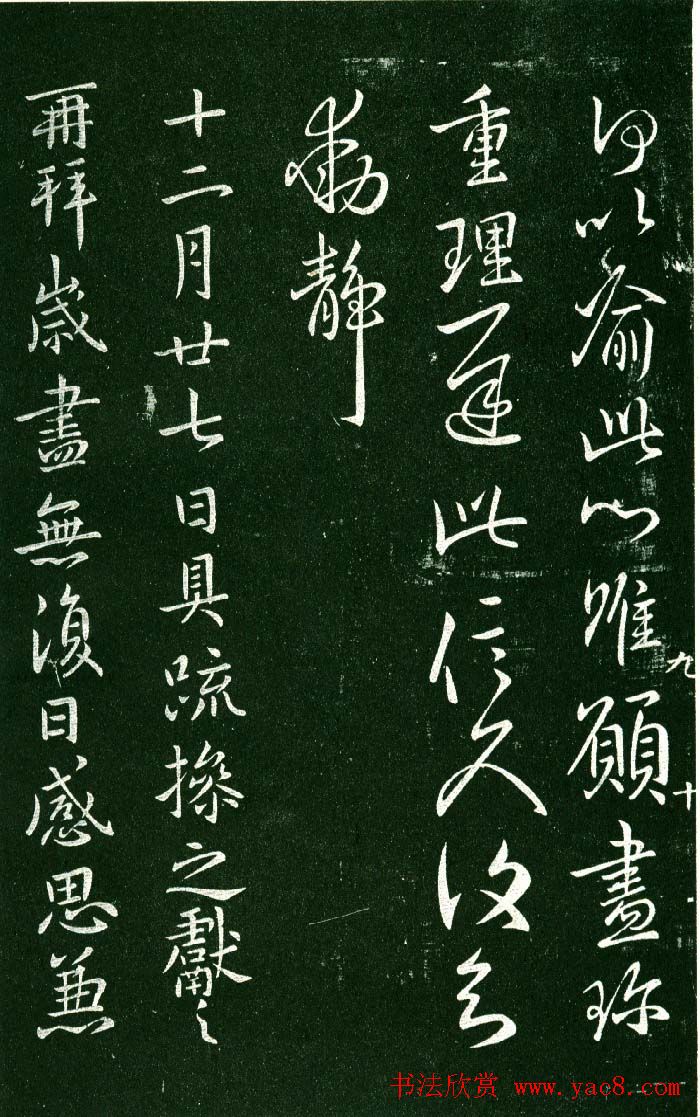 何以喻此心唯願盡珍
重理遲此信反復知
動靜
十二月廿七日具疏操之獻之
再拜歲盡無復日感思兼
九
十
书法欣赏 www.yac8.com